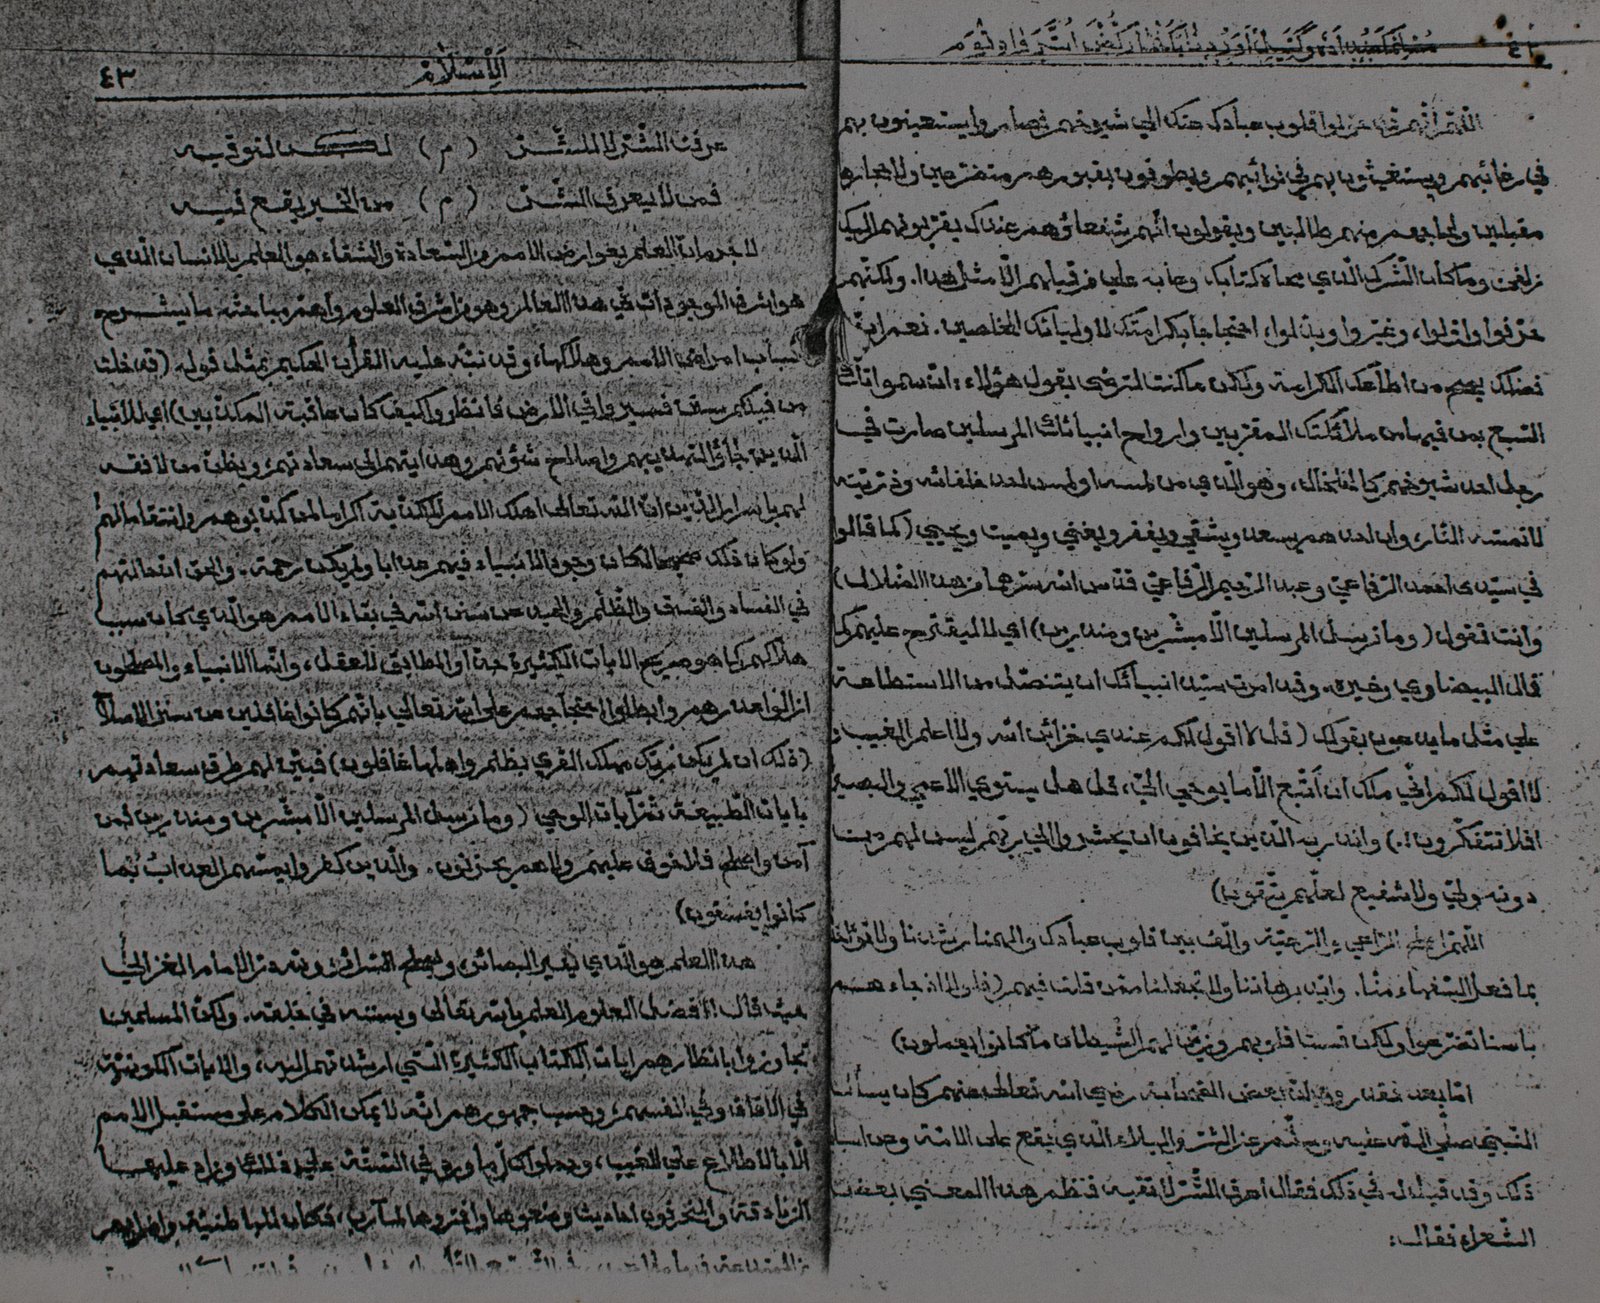 اللهم انهم قد عزلوا قلوب عبادك عنك الى شيوخهم فصاروا يستعينون بهم
في رغائبهم ويستغيثون بهم في نوائبهم ويطوفون بقبورهم متضرعين ولاحجارها
مقبلين ولحاجهم منهم طالبين ويقولون انهم شفعاؤهم عندك يقربونهم اليك
زلفى وما كان الشرك الذي محاه كتابك وعابه على من قبلهم الا مثل هذا. ولكنهم
حرفوا واولوا، وغيروا وبدلوا، احتجاجا بكرامتك لاوليائك المخلصين. نعم ان
فضلك يصح من اطاعك الكرامة ولكن ما كنت لترضى بقول هؤلاء: ان سمواتك
السبع بمن فيها من ملائكتك المقربين وارواح انبيائك المرسلين صارت في
رجل احد شيوخهم كالخلخال، وهو الذي من لمسه او لمس احد خلفائه وذريته
لا تمسه النار، وان احدهم يسعد ويشقي ويفقر ويغني ويميت ويحيي (كما قالوا
في سيدى احمد الرفاعي وعبد الرحيم الرفاعي قدس الله سرهما من هذا الضلال)
وانت تقول (وما نرسل المرسلين الا مبشرين ومنذرين) اي لا ليقترح عليهم كما
قال البيضاوي وغيره. وقد امرت سيد انبيائك ان يتنصل من الاستطاعة
على مثل ما يدعون بقولك (قل لا اقول لكم عندي خزائن الله ولا اعلم الغيب و
لا اقول لكم اني ملك ان أتبع الا ما يوحى الي، قل هل يستوي الاعمى والبصير
افلا تتفكرون؟.) وانذر به الذين يخافون ان يحشروا الى ربهم ليس لهم من
دونه ولي ولا شفيع لعلهم يتقون)
اللهم اصلح الراعي والرعية والف بين قلوب عبادك والهمنا رشدنا ولا تؤاخذنا
بما فعل السفهاء منا. وانر برهاننا ولا تجعلنا ممن قلت فيهم (فلولا اذ جاءهم
باسنا تضرعوا ولكن قست قلوبهم وزين لهم الشيطان ما كانوا يعملون)
اما بعد فقد روي ان بعض الصحابة رضي الله تعالى عنهم كان يسأل
النبي صلى الله عليه وسلم عن الشر والبلاء الذي يقع على الامة وعن اسباب
ذلك وقد قيل له في ذلك فقال اعرف الشر لاتقيه فنظم هذا المعنى بعض
الشعراء فقال:
الاسلام ٤٣
عرفت الشر لا للشر (م) لكن لتوقيه
فمن لا يعرف الشر (م) من الخير يقع فيه
لا جرم ان العلم بعوارض الامم من السعادة والشقاء هو العلم بالانسان الذي
هو اشرف الموجودات في هذا العالم وهو من اشرف العلوم واهم مباحثه ما يشرح
اسباب امراض الامم وهلاكها، وقد نبه عليه القرآن الحكيم بمثل قوله (قد خلت
من قبلكم سنن فسيروا في الارض فانظروا كيف كان عاقبة المكذبين) اي للانبياء
الذين جاؤا لتهذيبهم واصلاح شؤنهم وهدايتهم الى سعادتهم، ويظن من لا فقه
لهم باسرار الدين ان الله تعالى اهلك الامم المكذبة اكراما لمن كذبوهم وانتقاما لهم
ولو كان ذلك صحيحا لكان وجود الانبياء فيهم عذابا ولم يكن رحمة. والحق انهم
في الفساد والفسق والظلم والحيد عن سنن الله في بقاء الامم هو الذي كان سبب
هلاكهم كما هو صريح الايات الكثيرة جدا والمطابق للعقل، وانما الانبياء والمصلحون
ازالوا عذرهم وابطلوا احتجاجهم على الله تعالى بانهم كانوا غافلين عن سنن الاصلاح
(ذلك ان لم يكن ربك مهلك القرى بظلم واهلها غافلون) فبين لهم طرق سعادتهم
بايات الطبيعة ثم بآيات الوحي (وما نرسل المرسلين الا مبشرين ومنذرين فمن
آمن واصلح فلا خوف عليهم ولا هم يحزنون. والذين كفروا يمسهم العذاب بما
كانوا يفسقون)
هذا العلم هو الذي ينير البصائر، ويصلح السرائر
حيث قال ان افضل العلوم العلم بالله تعالى وسننه في خلقه. ولكن المسلمين
تجاوزوا بانظارهم ايات الكتاب الكثيرة التي ارشدتهم اليه، والايات الكونية
في الافاق وفي انفسهم، وحسب جمهورهم انه لا يمكن الكلام على مستقبل الامم
الا بالاطلاع على الغيب،